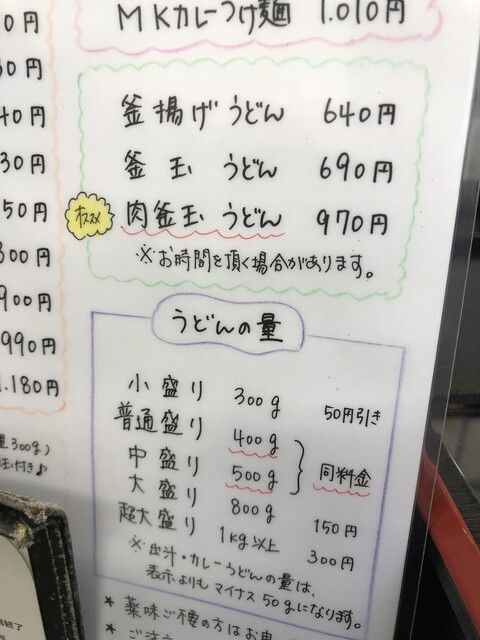 MKカレーつけ麺 1.010円
釜揚げうどん 640円
釜玉うどん 690円
オススメ 肉釜玉うどん 970円
※お時間を頂く場合があります。
0円
30円
40円
30円
50円
300円
900円
990円
1.180円
うどんの量
小盛り 300g 50円引き
普通盛り 400g
中盛り 500g 同料金
大盛り 800g 150円
超大盛り 1kg以上 300円
※出汁・カレーうどんの量は、
表示よりもマイナス50gになります。
量300g)
玉付き♪
* 薬味ご不要の方はお申
* ご注文
終了